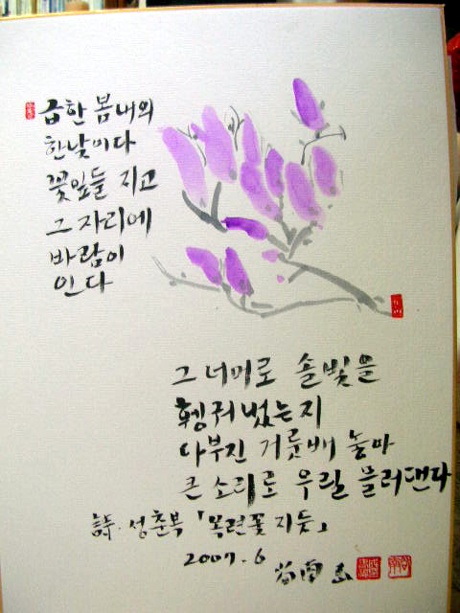 급한 봄내의
한낮이다
꽃잎들 지고
그 자리에
바람이
인다
그 너머로 솔빛을
헹궈 넜는지
다부진 거룻배 놓아
큰 소리로 우릴 불러댄다
詩·성춘복 「목련꽃 지듯」
2007.6